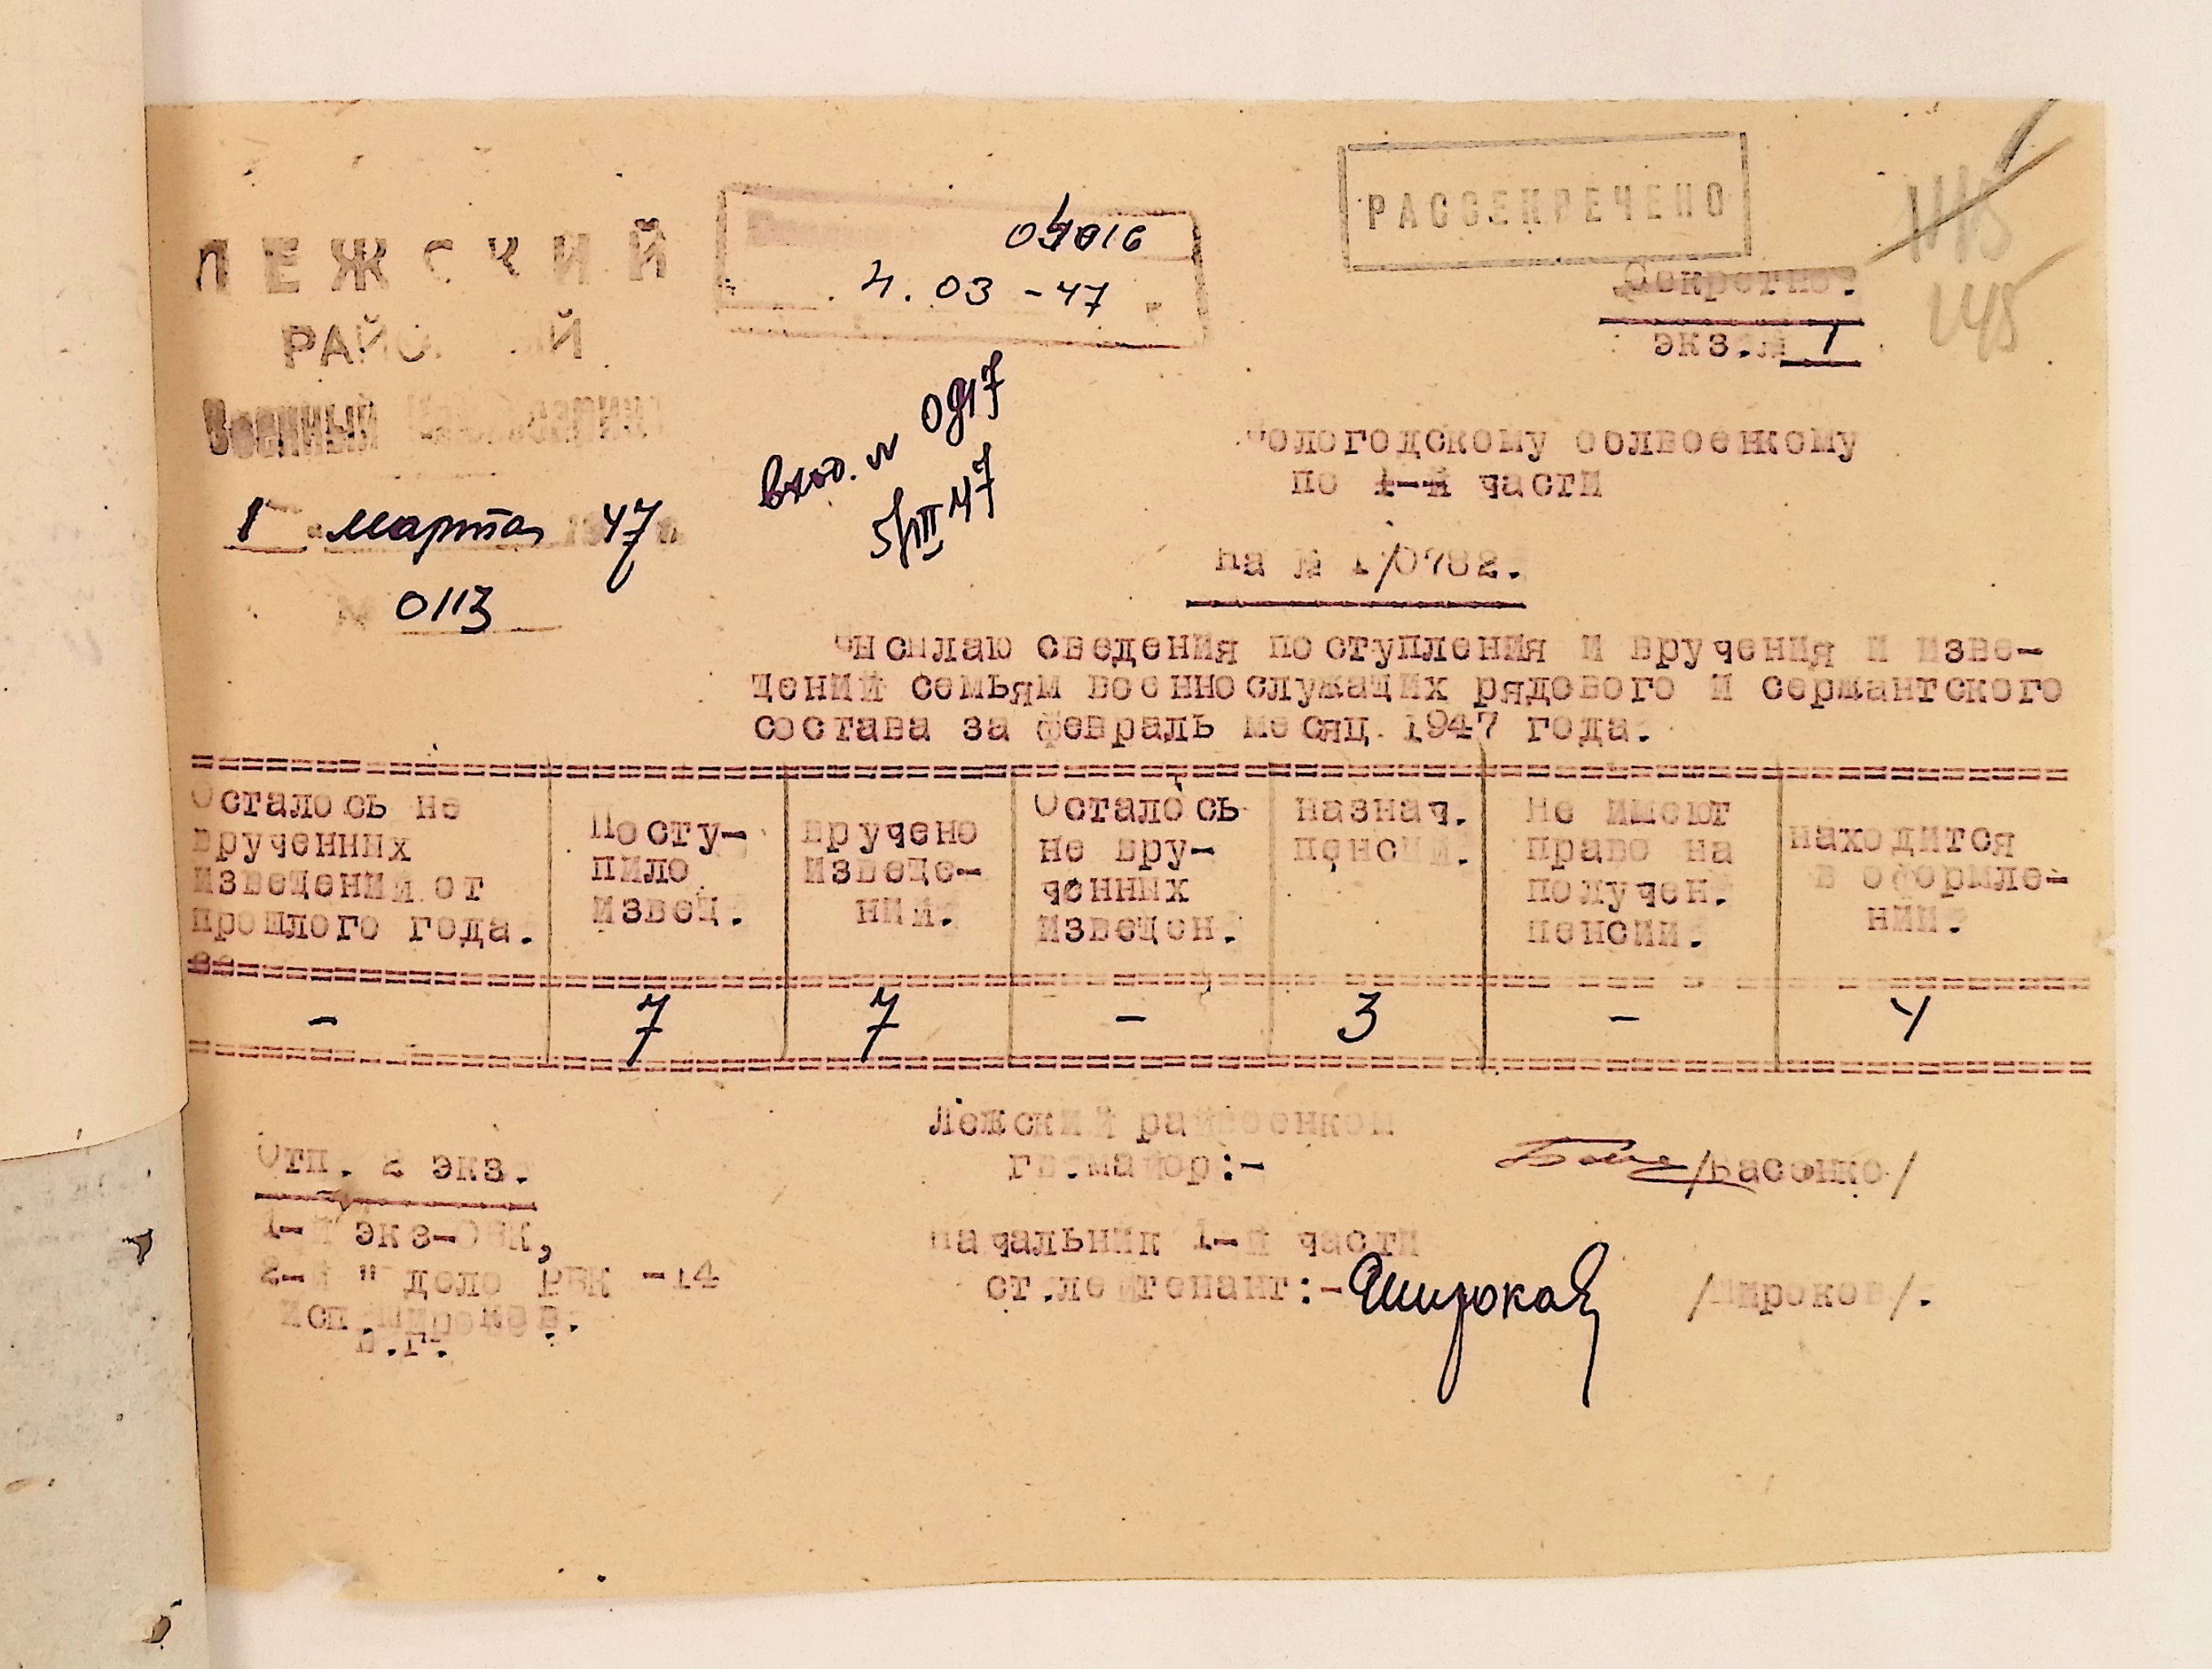 ЛЕЖСКИЙ
РАЙОННЫЙ
Военный
1 " марта 1947 г.
№ 0113
4.03-47
вход. №
5/III 47
РАССЕКРЕЧЕНО
145
Секретно.
экз.№ 1
Вологодскому облвоенкому
по 1-й части
на № 1/0782.
Высылаю сведения поступления и вручения и изве-
щений семьям военнослужащих рядового и сержантского
состава за февраль месяц 1947 года.
Осталось не
врученных
извещений от
прошлого года.
Посту-
пило
извещ.
вручено
извеще-
ний.
Осталось
не вру-
ченных
извещен.
назнач.
пенсий.
Не имеют
право на
получен.
пенсии.
находится
в оформле-
нии.
- 7 7 - 3 - 4
Лежский райвоенком
гв.майор:- /Басенко/
Начальник 1-й части
ст.лейтенант:- Широков /Широков/.
Отп. 2 экз.
1-й экз-ОВК,
2-й " дело РВК -14
исп.Широков.